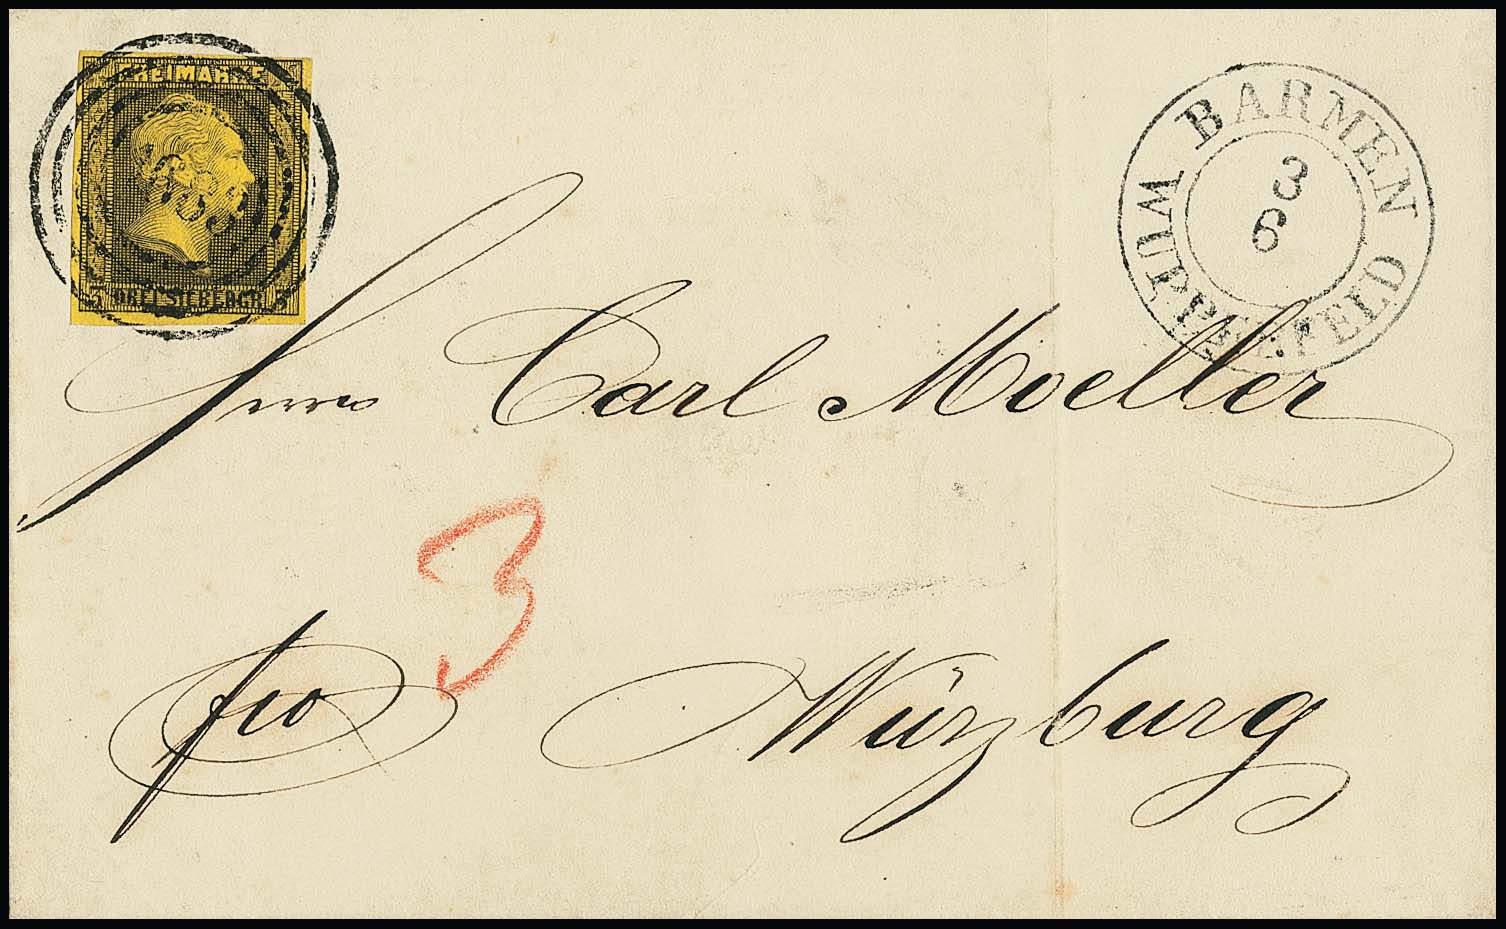 FREIMARKE
3 DREI SILBERGR. 3
BARMEN
3
6
WUPPERFELD
Herrn Carl Moeller
3
fco Würzburg